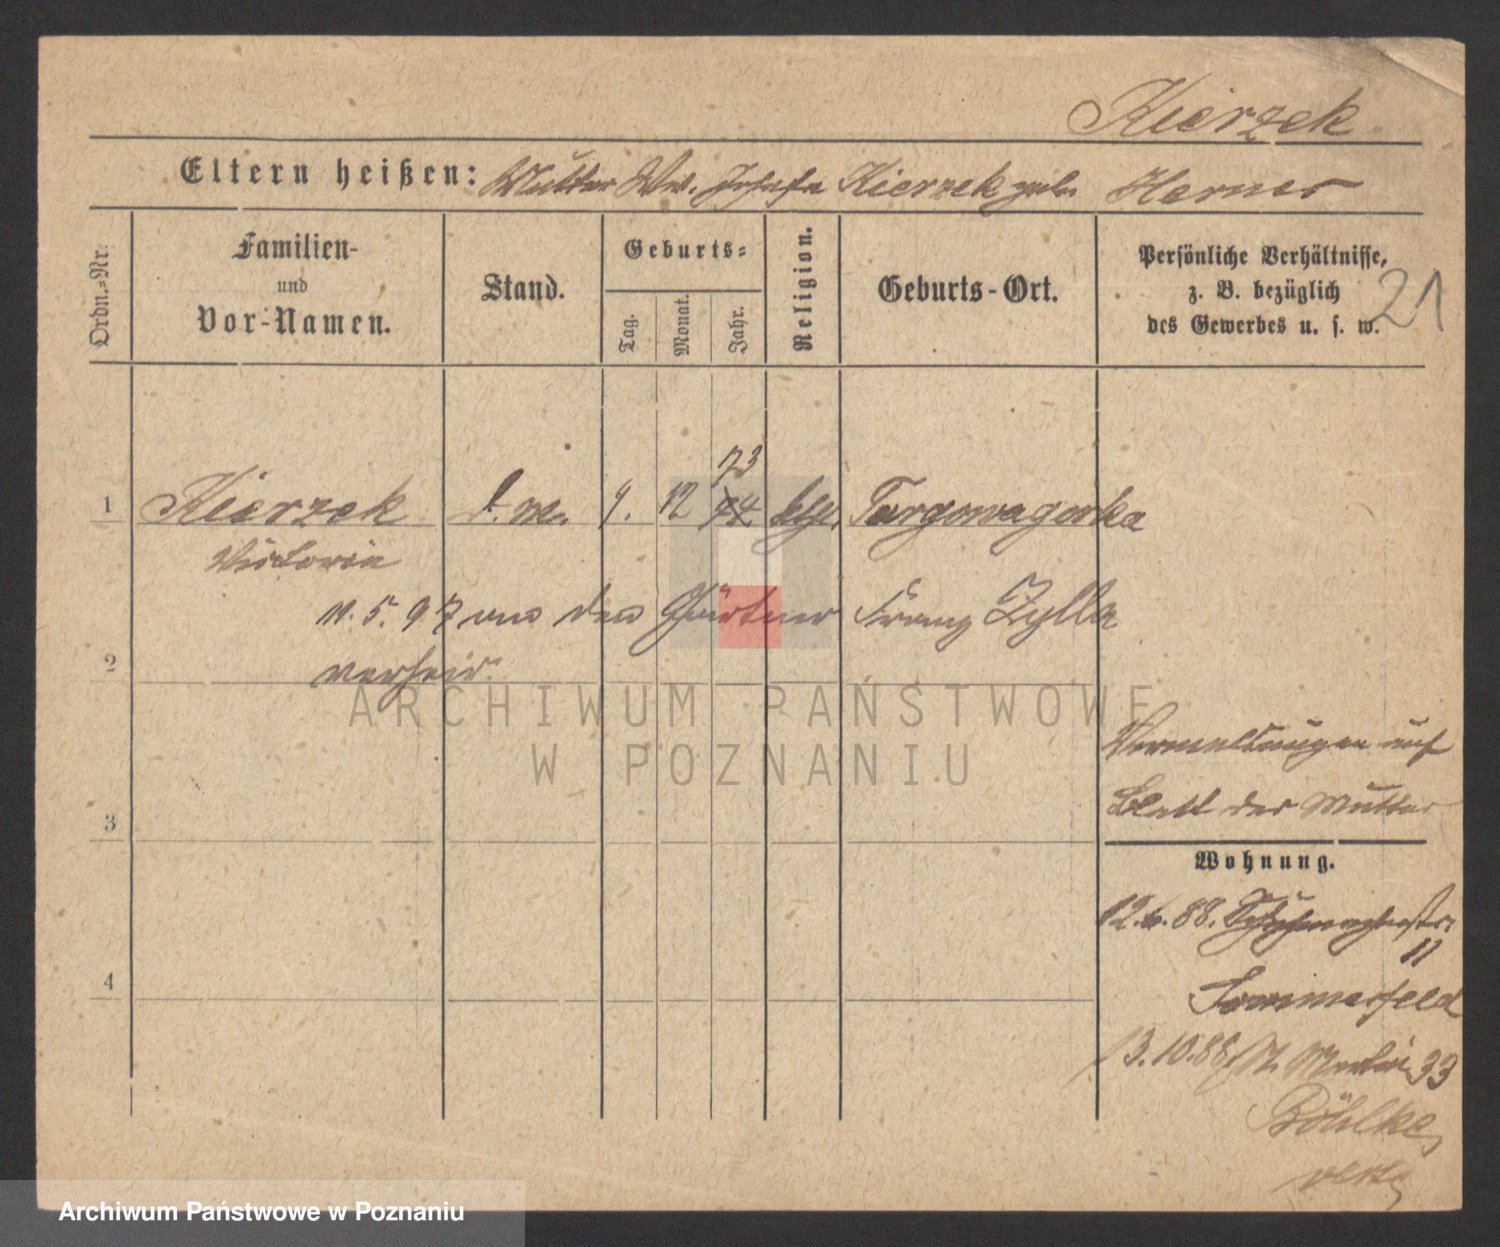 Kierzek
Eltern heißen: Mutter Ww. Josefa Kierzek geb. Herner
Ordn.-Nr.
Familien-
und
Vor-Namen.
Stand.
Geburts-
Tag.
Monat.
Jahr.
Religion.
Geburts-Ort.
Persönliche Verhältnisse,
z. B. bezüglich
des Gewerbes u. s. w.
21
73
1 Kierzek d. m. 9. 12 74 kth. Targowagorka
Victoria
11. 5. 97 an den Gärtner Franz Zylla
2
verheir.
Vermeldungen auf
Blatt der Mutter
3
Wohnung.
12. 6. 88. Schuhmacherstr.
11
Sommerfeld
4
13. 10. 88 St. Martin 33
Böhlke
ARCHIWUM PAŃSTWOWE
W POZNANIU
Archiwum Państwowe w Poznaniu